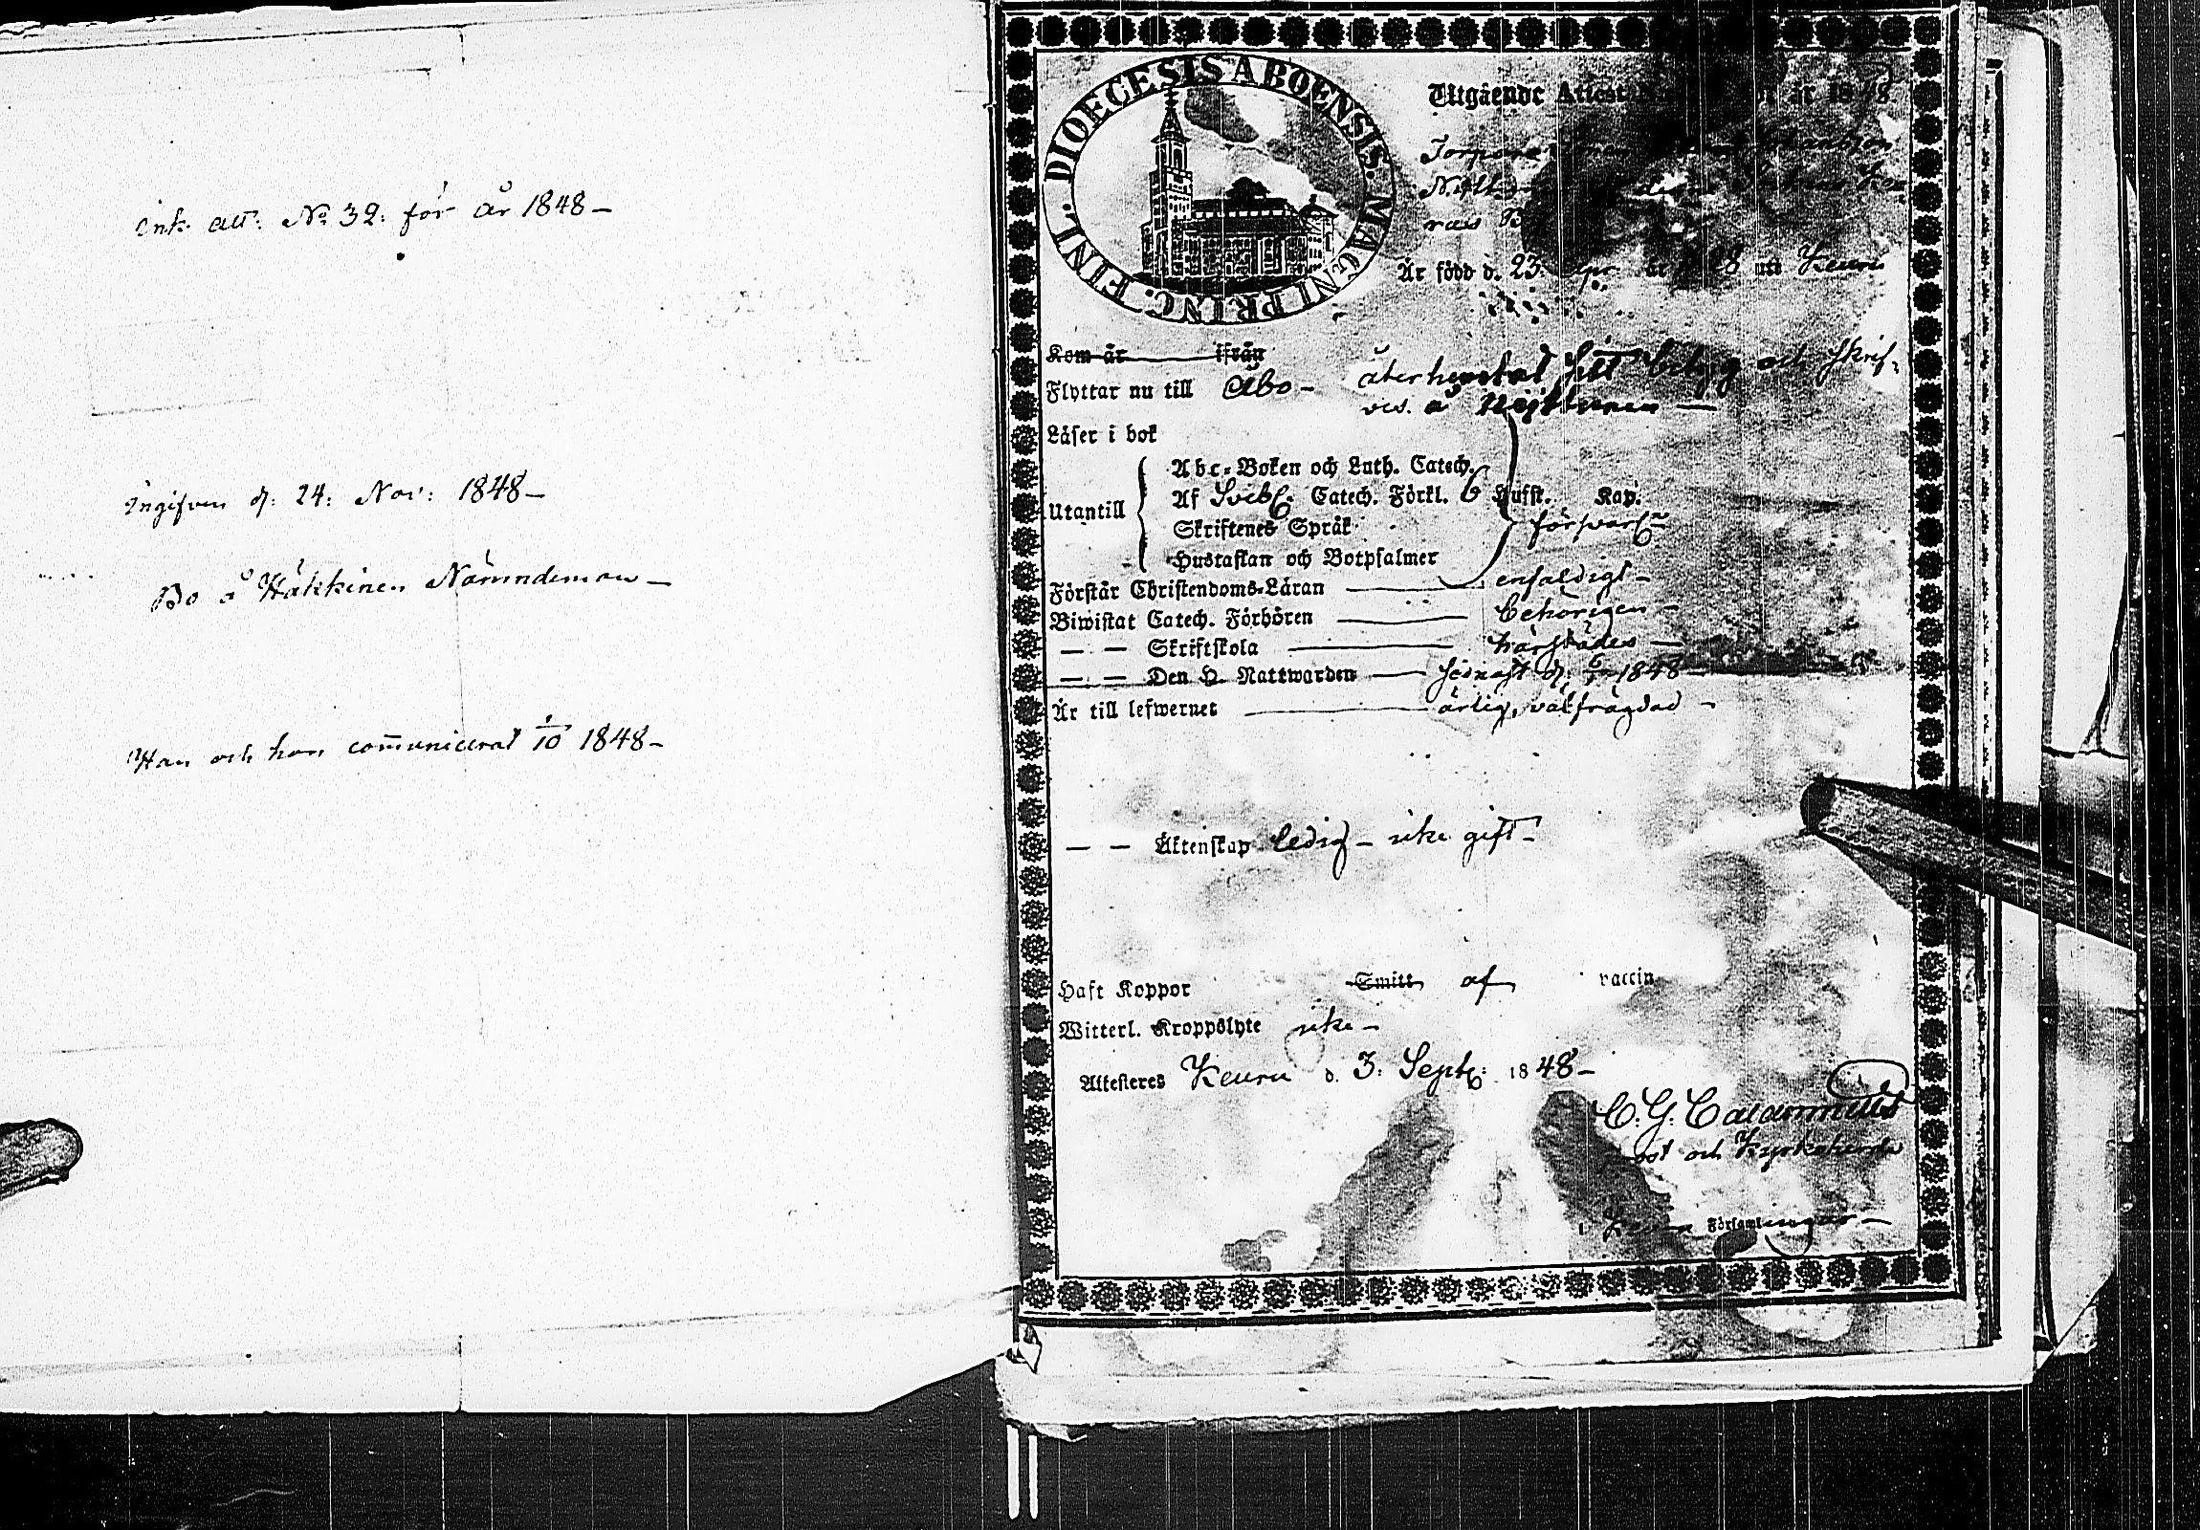 ink. att: No 32: för år 1848 –
Ingifven d: 24: Nov: 1848 –
Bo å Häkkinen Nämndeman –
Han och hon com̄unicerat 1/10 1848 –
DIOECESIS ABOENSIS. MAGNI PRINC. FINL.
Utgående Attest år 1848
Är född d. 23 år 28 uti Keuru
Kom år ifrån
Flyttar nu till Åbo – återhemtat sitt betyg och skrif-
ves å
Läser i bok
Utantill
Abc-Boken och Luth. Catech.
Af Catech. Förkl. 6 Hufst. Kap.
Skriftenes Språk försvarl:n
Hustaflan och Botpsalmer
Förstår Christendoms-Läran enfaldigt –
Biwistat Catech. Förhören behörigen –
— — Skriftskola härstädes –
— — Den H. Nattwarden sednast d: 1848 –
Är till lefwernet ärlig, välfrägdad –
— — Äktenskap ledig – icke gift –
Haft Koppor Smitt af vaccin
Witterl. Kroppslyte icke –
Attesteres Keuru d. 3: Sept: 1848 –
C. G. Calamnius
Prost och Kyrkoherde
i Keuru Församlingar –